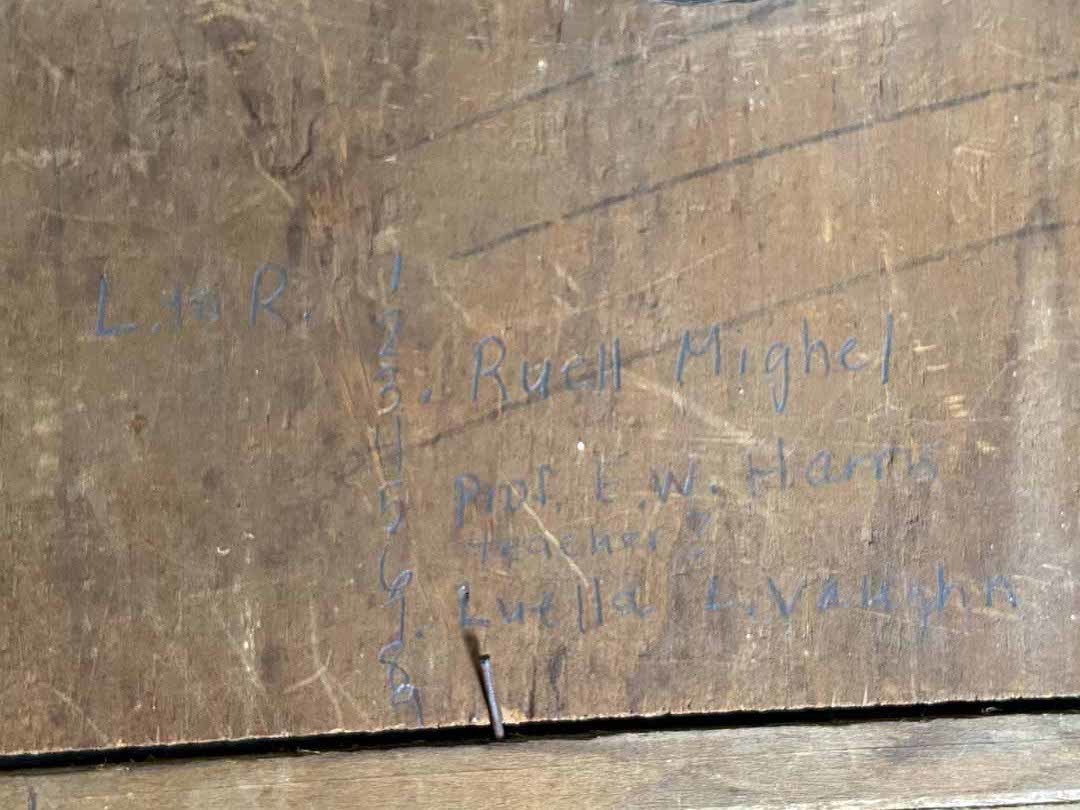 L. to R. 1
2
3. Ruell Mighel
4
5 Prof. E.W. Harris
teacher?
6
7. Luella L. Vaughn
8
9